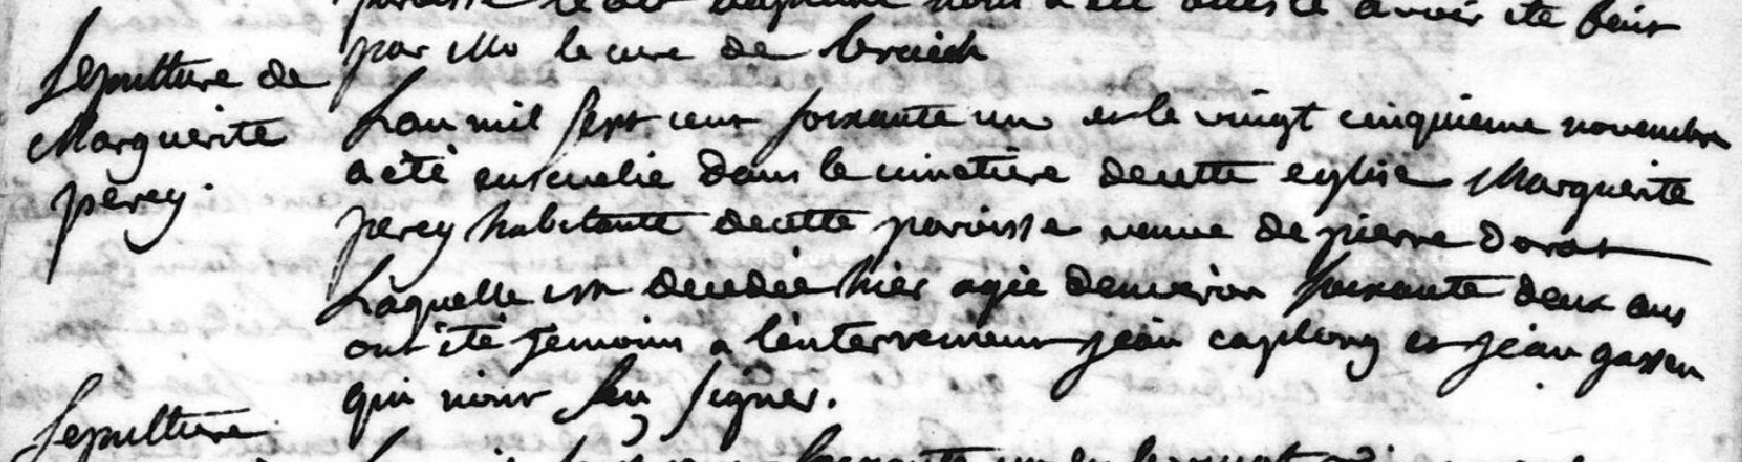 paroisse le dit nous a été attesté avoir été faite
par Mr le cure de
Sepulture de
Marguerite
perey.
Lan mil sept cent soixante un et le vingt cinquieme novembre
a été ensevelie dans le cimetiere decette eglise Marguerite
perey habitante decette paroisse veuve de pierre dorat
Laquelle est decedée hier agée denviron soixante deux ans
ont été temoins a lenterrement jean caplong et jean gassen
qui nont seu signer.
Sepulture